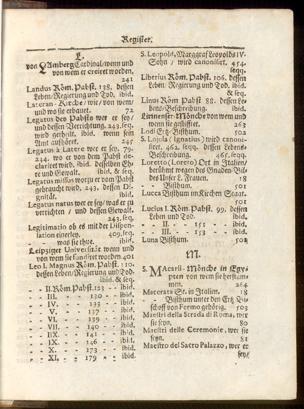 Register.
L.
von LAmberg Cardinal, wenn und
von wem er creiret worden,
241
Landus Röm. Pabst. 138. dessen
Leben/Regierung und Tod. ibid.
Lateran-Kirche/ wie/ von wem/
und wo sie erbauet. 72
Legatus des Pabsts wer er sey/
und dessen Verrichtung. 243. seq.
wird getheilt. ibid. wenn sein
Amt aufhöret. 245
Legatus à Latere wer er sey. 79.
244. wo er von dem Pabst de-
clariret wird. ibid. desselben Eh-
re und Gewalt. ibid. & seq.
Legatus missus worzu er vom Pabst
gebraucht wird. 243. dessen Di-
gnität. ibid.
Legatus natus wer er sey/ was er zu
verrichten / und dessen Gewalt.
243. seq.
Legitimatio ob es mit der Dispen-
sation einerley. 409. seq.
- - was sie thue. ibid.
Leipziger Universität wenn und
von wem sie fundiret worden 401
Leo I. Magnus Röm. Pabst. 110.
dessen Leben/Regierung und Tod.
ibid. & seq.
- - II. Röm. Pabst. 123 - - ibid.
- - III. - - 130 - - ibid.
- - IV. - - 135 - - ibid.
- - V. - - 137 - - ibid.
- - VI. - - 139 - - ibid.
- - VII. - - 140 - - ibid.
- - IIX. - - 141 - - ibid.
- - IX. - - 146 - - ibid.
- - X. - - 173 - - ibid.
- - XI. - - 179 - - ibid.
S. Leopold, Marggraf Leopolds IV.
Sohn / wird canonisirt. 454.
seqq.
Liberius Röm. Pabst. 106. dessen
Leben/ Regierung und Tod. ibid.
& seq.
Linus Röm Pabst 88. dessen Le-
bens/Beschreibung. ibid.
Lirinenser-Mönche von wem und
wenn sie gestifftet 263
Lodi Ertz-Bisthum. 502
S. Lojola (Ignatius) wird canoni-
siret. 462. seqq. dessen Lebens-
Beschreibung. 465. seqq.
Loreto (Loreto) Ort in Italien
berühmt wegen des Gnaden-Bil-
des Unser L. Frauen. 18
- - Bisthum. 501
Lucca Bisthum im Kirchen Staat.
501
Lucius I. Röm. Pabst. 99. dessen
Leben und Tod. ibid.
- - II. - - 151 - - ibid.
- - III. - - 153 - - ibid.
Luna Bisthum. 502
M.
S. MAcarii-Mönche in Egy-
pten von wem sie herstam-
men. 264
Macerata St. in Italien. 18
- - Bisthum unter den Ertz Bi-
schoff von Fermo gehörig. 503
Maestri della Strada di Roma, wer
sie seyn. 80
Maestri delle Ceremonie, wer sie
seyn. 81
Maestro del Sacro Palazzo, wer er
sey/